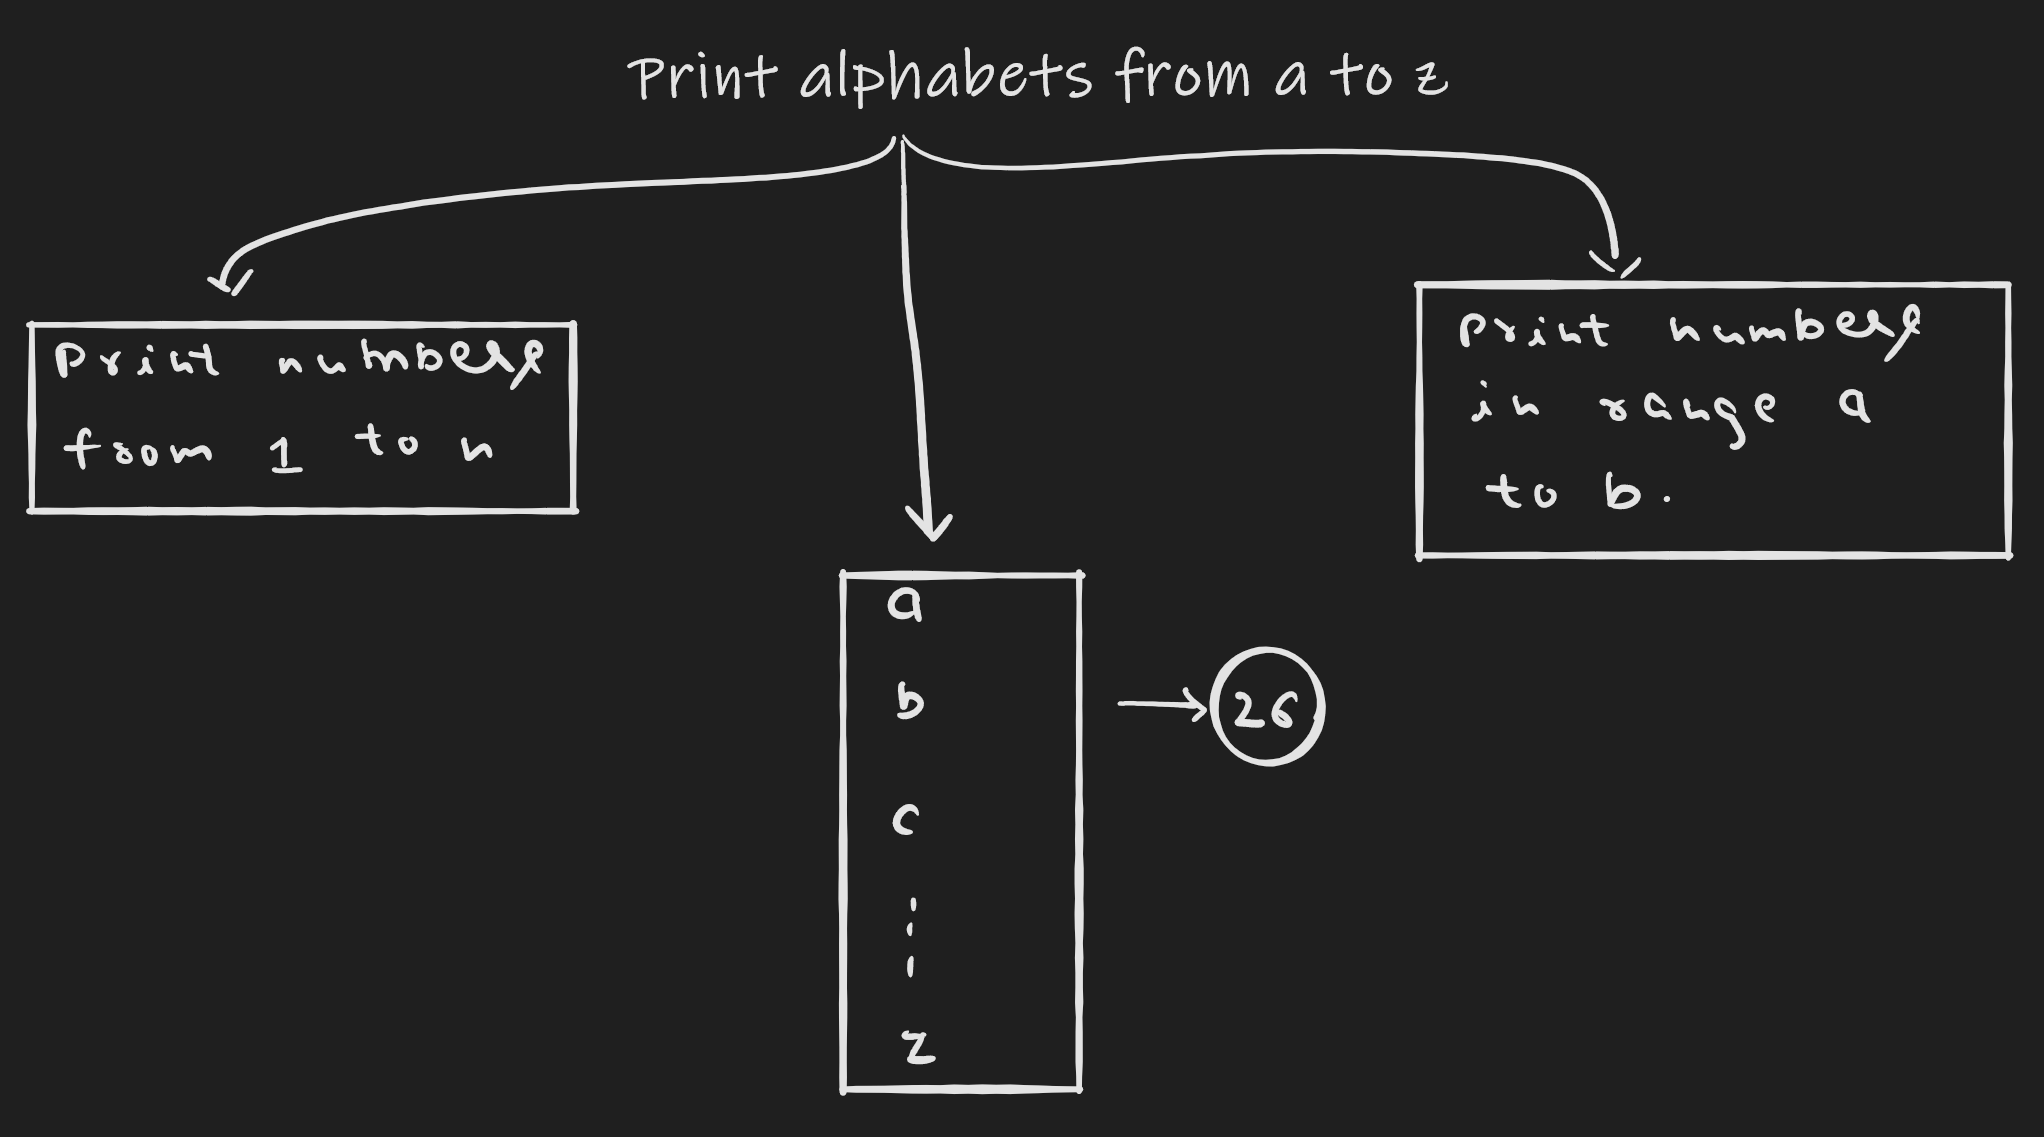 Print alphabets from a to z
Print numbers
from 1 to n
Print numbers
in range a
to b.
a
b
26
c
z